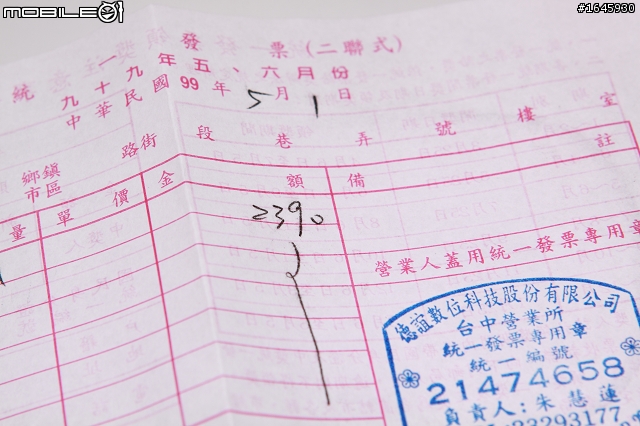 MOBILE01
#1645930
統一發票(二聯式)
九十九年五、六月份
中華民國99年5月1日
路街 段 巷 弄 號 樓 室
鄉鎮
市區
量 單價 金額 備註
2390
營業人蓋用統一發票專用章
德誼數位科技股份有限公司
台中營業所
統一發票專用章
統一編號
21474658
負責人:朱慧蓮
23293177